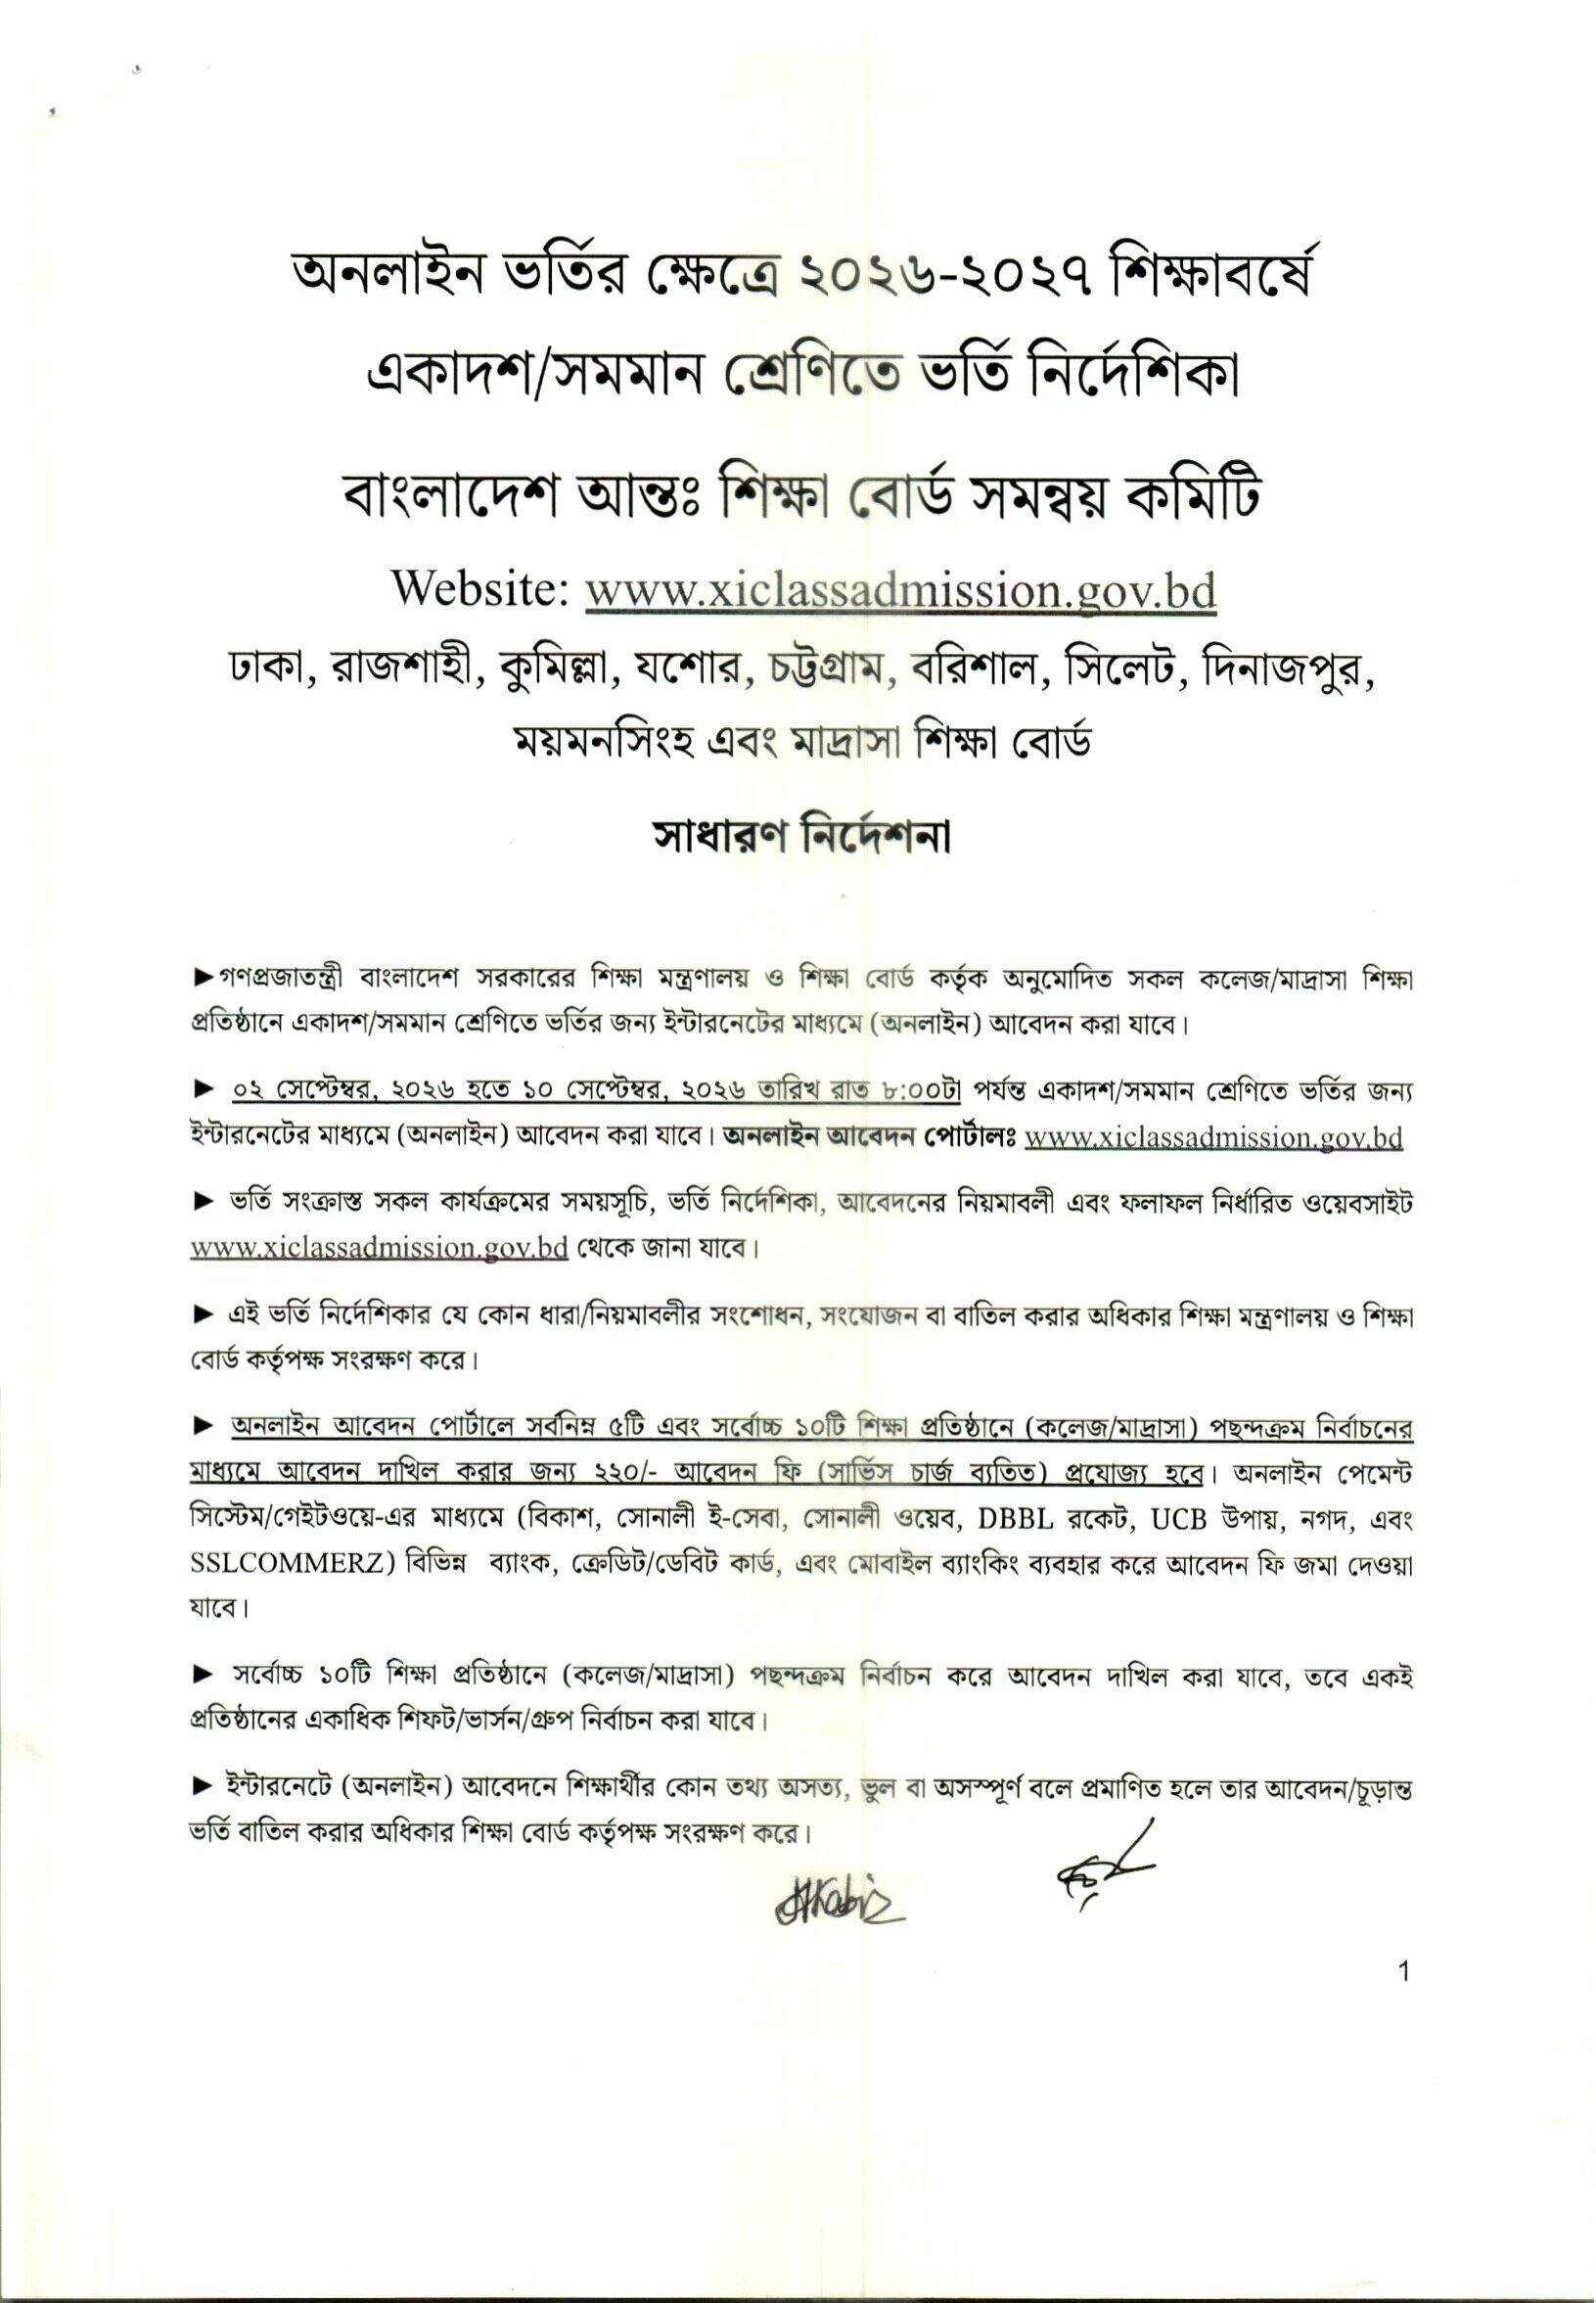 অনলাইন ভর্তির ক্ষেত্রে ২০২৬-২০২৭ শিক্ষাবর্ষে
একাদশ/সমমান শ্রেণিতে ভর্তি নির্দেশিকা
বাংলাদেশ আন্তঃ শিক্ষা বোর্ড সমন্বয় কমিটি
Website: www.xiclassadmission.gov.bd
ঢাকা, রাজশাহী, কুমিল্লা, যশোর, চট্টগ্রাম, বরিশাল, সিলেট, দিনাজপুর,
ময়মনসিংহ এবং মাদ্রাসা শিক্ষা বোর্ড
সাধারণ নির্দেশনা
►গণপ্রজাতন্ত্রী বাংলাদেশ সরকারের শিক্ষা মন্ত্রণালয় ও শিক্ষা বোর্ড কর্তৃক অনুমোদিত সকল কলেজ/মাদ্রাসা শিক্ষা
প্রতিষ্ঠানে একাদশ/সমমান শ্রেণিতে ভর্তির জন্য ইন্টারনেটের মাধ্যমে (অনলাইন) আবেদন করা যাবে।
► ০২ সেপ্টেম্বর, ২০২৬ হতে ১০ সেপ্টেম্বর, ২০২৬ তারিখ রাত ৮:০০টা পর্যন্ত একাদশ/সমমান শ্রেণিতে ভর্তির জন্য
ইন্টারনেটের মাধ্যমে (অনলাইন) আবেদন করা যাবে। অনলাইন আবেদন পোর্টালঃ www.xiclassadmission.gov.bd
► ভর্তি সংক্রান্ত সকল কার্যক্রমের সময়সূচি, ভর্তি নির্দেশিকা, আবেদনের নিয়মাবলী এবং ফলাফল নির্ধারিত ওয়েবসাইট
www.xiclassadmission.gov.bd থেকে জানা যাবে।
► এই ভর্তি নির্দেশিকার যে কোন ধারা/নিয়মাবলীর সংশোধন, সংযোজন বা বাতিল করার অধিকার শিক্ষা মন্ত্রণালয় ও শিক্ষা
বোর্ড কর্তৃপক্ষ সংরক্ষণ করে।
► অনলাইন আবেদন পোর্টালে সর্বনিম্ন ৫টি এবং সর্বোচ্চ ১০টি শিক্ষা প্রতিষ্ঠানে (কলেজ/মাদ্রাসা) পছন্দক্রম নির্বাচনের
মাধ্যমে আবেদন দাখিল করার জন্য ২২০/- আবেদন ফি (সার্ভিস চার্জ ব্যতিত) প্রযোজ্য হবে। অনলাইন পেমেন্ট
সিস্টেম/গেইটওয়ে-এর মাধ্যমে (বিকাশ, সোনালী ই-সেবা, সোনালী ওয়েব, DBBL রকেট, UCB উপায়, নগদ, এবং
SSLCOMMERZ) বিভিন্ন ব্যাংক, ক্রেডিট/ডেবিট কার্ড, এবং মোবাইল ব্যাংকিং ব্যবহার করে আবেদন ফি জমা দেওয়া
যাবে।
► সর্বোচ্চ ১০টি শিক্ষা প্রতিষ্ঠানে (কলেজ/মাদ্রাসা) পছন্দক্রম নির্বাচন করে আবেদন দাখিল করা যাবে, তবে একই
প্রতিষ্ঠানের একাধিক শিফট/ভার্সন/গ্রুপ নির্বাচন করা যাবে।
► ইন্টারনেটে (অনলাইন) আবেদনে শিক্ষার্থীর কোন তথ্য অসত্য, ভুল বা অসম্পূর্ণ বলে প্রমাণিত হলে তার আবেদন/চূড়ান্ত
ভর্তি বাতিল করার অধিকার শিক্ষা বোর্ড কর্তৃপক্ষ সংরক্ষণ করে।
1